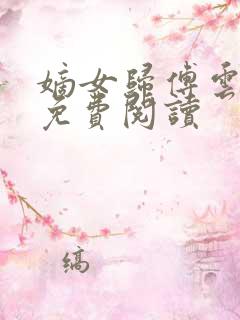 嫡女歸傅雲
免費閱讀
縞